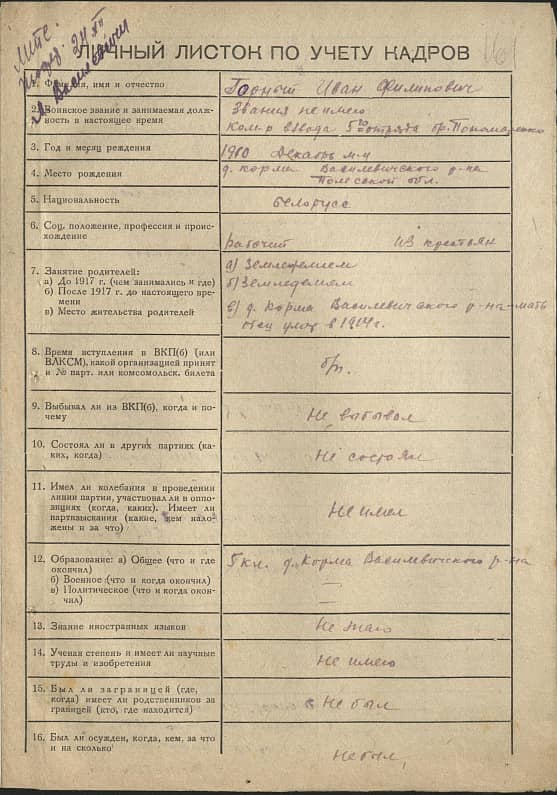 24/XII
16
ЛИЧНЫЙ ЛИСТОК ПО УЧЕТУ КАДРОВ
1. Фамилия, имя и отчество
Иван Филипович
2. Воинское звание и занимаемая долж-
ность в настоящее время
Звания не имею
Ком-р взвода 5го отряда бр. Пономаренко
3. Год и месяц рождения
1910 Декабрь м-ц
4. Место рождения
д. Корма Василевичского р-на
Полесской обл.
5. Национальность
белорусс
6. Соц. положение, профессия и проис-
хождение
рабочий из крестьян
7. Занятие родителей:
а) До 1917 г. (чем занимались и где)
б) После 1917 г. до настоящего вре-
мени
в) Место жительства родителей
а) Земледелием
б) Земледелием
в) д. Корма Василевичского р-на-мать
отец умер в 1914 г.
8. Время вступления в ВКП(б) (или
ВЛКСМ), какой организацией принят
и № парт. или комсомольск. билета
б/п.
9. Выбывал ли из ВКП(б), когда и по-
чему
Не выбывал
10. Состоял ли в других партиях (ка-
ких, когда)
Не состоял
11. Имел ли колебания в проведении
линии партии, участвовал ли в оппо-
зициях (когда, каких). Имеет ли
партвзыскания (какие, кем нало-
жены и за что)
Не имел
12. Образование: а) Общее (что и где
окончил)
б) Военное (что и когда окончил)
в) Политическое (что и когда окон-
чил)
5 кл. д. Корма Василевичского р-на
—
—
13. Знание иностранных языков
Не знаю
14. Ученая степень и имеет ли научные
труды и изобретения
Не имею
15. Был ли заграницей (где,
когда) имеет ли родственников за
границей (кто, где находится)
Не был
16. Был ли осужден, когда, кем, за что
и на сколько
Не был,